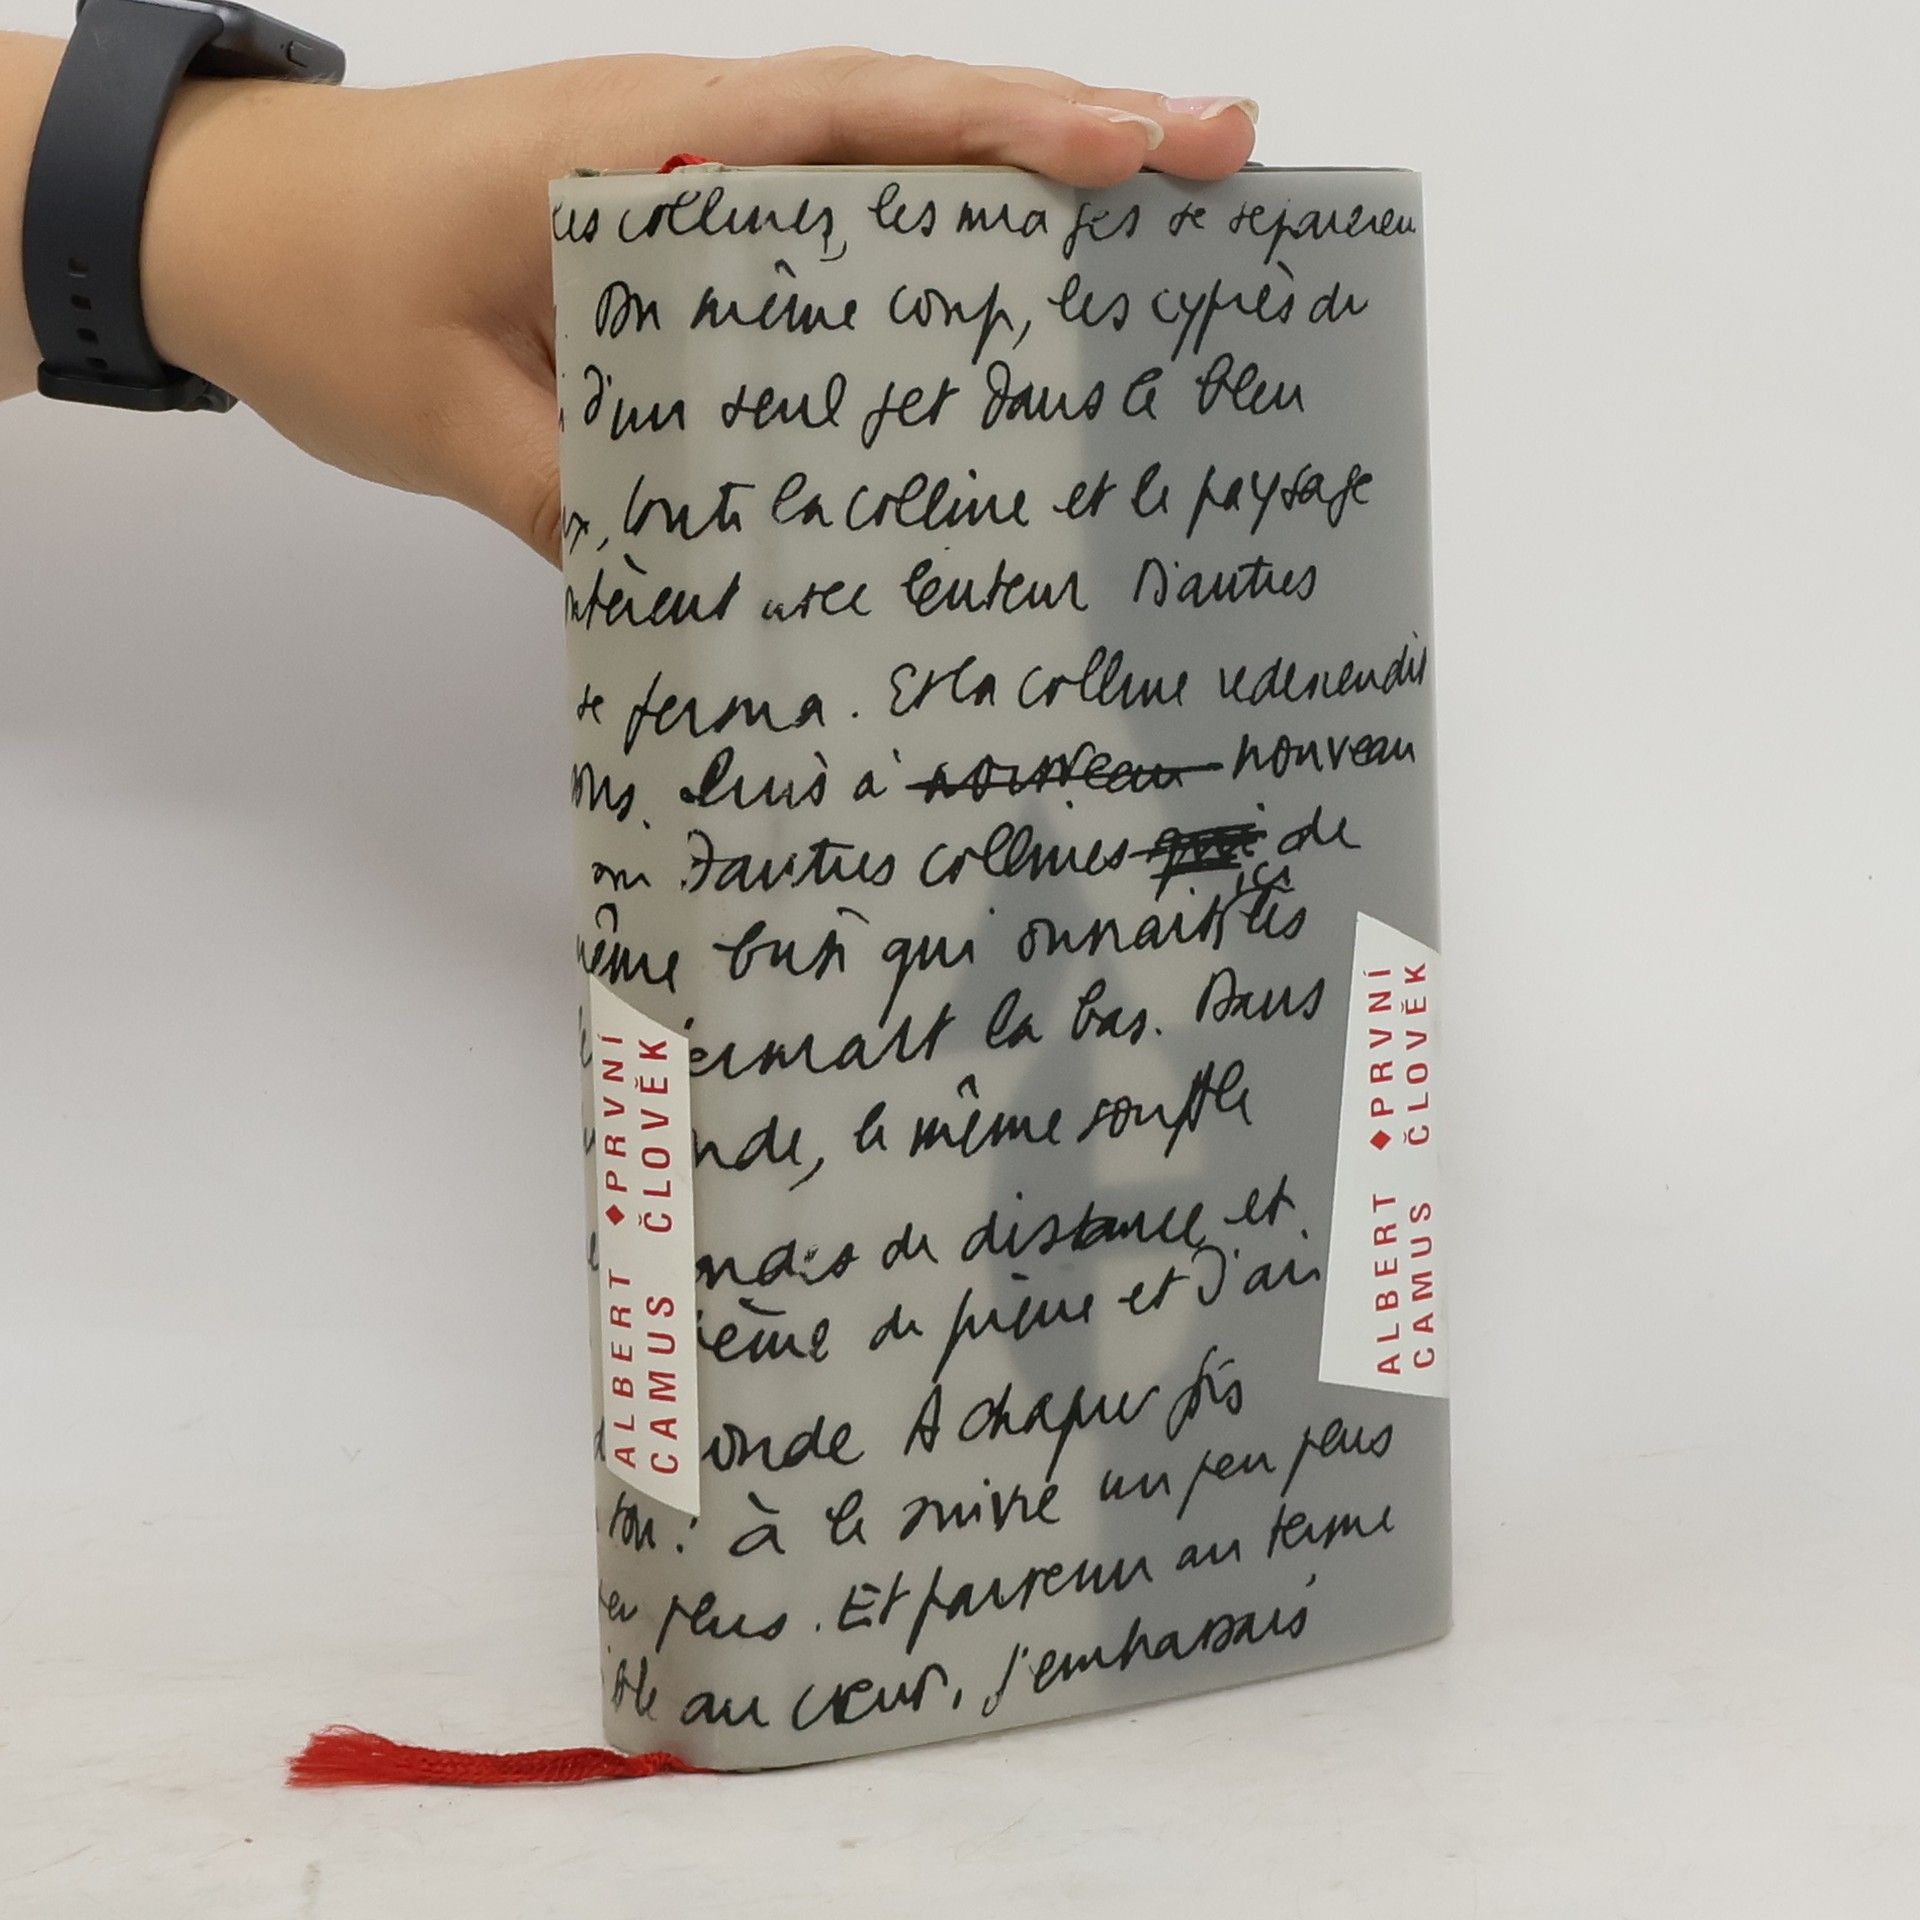 les collines, les nuages se séparèrent
Du même coup, les cyprès de
d'un seul jet dans le bleu
toute la colline et le paysage
avec lenteur D'autres
se ferma. Et la colline redescendit
Puis à nouveau nouveau
D'autres collines de
ici
même qui les
là bas. Dans
le même souffle
de distance et
de pierre et J'ai
A chaque fois
ton : à le suivre un peu plus
plus. Et parvenu au terme
au cœur, j'embrassais
ALBERT ♦PRVNÍ
CAMUS ČLOVĚK
ALBERT ♦PRVNÍ
CAMUS ČLOVĚK